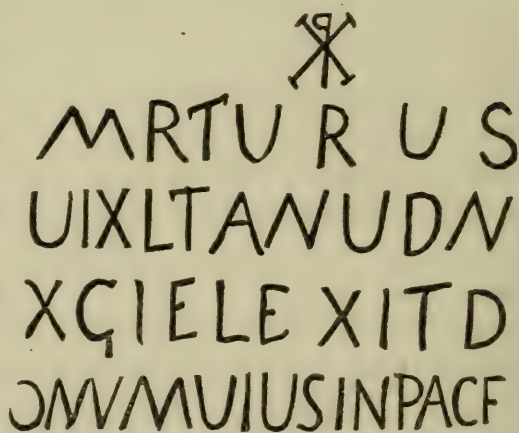 ☧
MRTURUS
UIXLTANUDN
XÇIELEXITD
ƆNVMUIUSINPACF